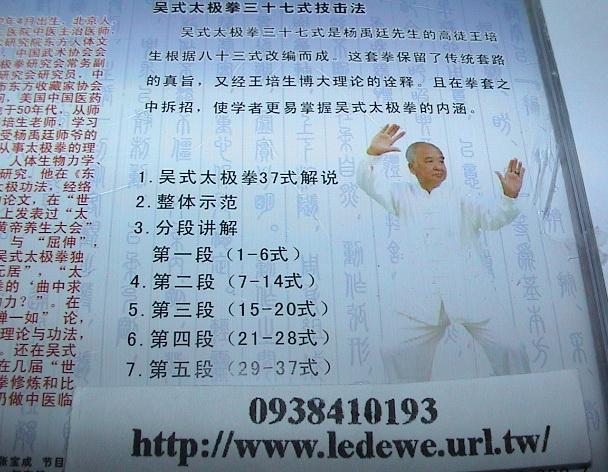 吴式太极拳三十七式技击法
吴式太极拳三十七式是杨禹廷先生的高徒王培
生根据八十三式改编而成。这套拳保留了传统套路
的真旨，又经王培生博大理论的诠释。且在拳套之
中拆招，使学者更易掌握吴式太极拳的内涵。
1. 吴式太极拳37式解说
2. 整体示范
3. 分段讲解
第一段（1-6式）
4. 第二段（7-14式）
5. 第三段（15-20式）
6. 第四段（21-28式）
7. 第五段（29-37式）
年4月出生，北京人
医院中医主治医师.
研究院东方人体文
中国武术协会会
极拳研究会常务副
研究会研究员，中
东方收藏家协会
美国中国医药
于50年代，从师
培生老师，学习
受杨禹廷师爷的
从事太极拳的理
人体生物力学、
研究。他在《东
极功法，经络
论文，在“世
上发表过“太
黄帝养生大会”
与“屈伸”，
吴式太极拳独
无居”，“太
的‘曲中求
力？”。在
禅一如”论，
理论与功法，
还在吴式
在几届“世
拳修炼和比
仍做中医临
张宝成 节目
0938410193
http://www.ledewe.url.tw/